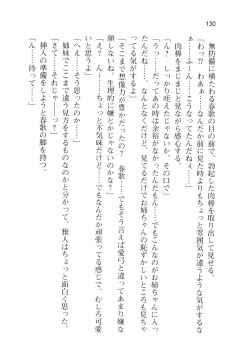 130
無防備に横たわる春歌の目の前で、勃起した肉棒を取り出して見せる。
「わっ!? わあぁ……なんだか前に見た時よりもちょっと雰囲気が違うような気がするな
ぁ……ふーん……こうなってたんだねぇ……」
肉棒をまじまじと見ながら感心する。
「だって……さっきの時は余裕がなかったし……
たんだね……なんだけど、見てるだけでお姉ちゃんの恥ずかしいところも見ちゃ
ってる気がするよ」
「そこまで想像力が豊かだったの? 春歌……でもそう言えば愛弓と違ってあまり嫌な
顔しないね 生理的に嫌とかじゃないのかな?」
「えっ? んー……ちょっと不気味だけど……でもなんだか頑張ってる感じで、むしろ可愛
いと思うよ」
「へぇ……そう思ったのか……」
姉妹でここまで違う見方をするものなのかと分かって、雅人はちょっと面白く思った。
「さて……それじゃ――っと?」
挿入の準備をしようと春歌の脚を持つ。
「ん……待って……」